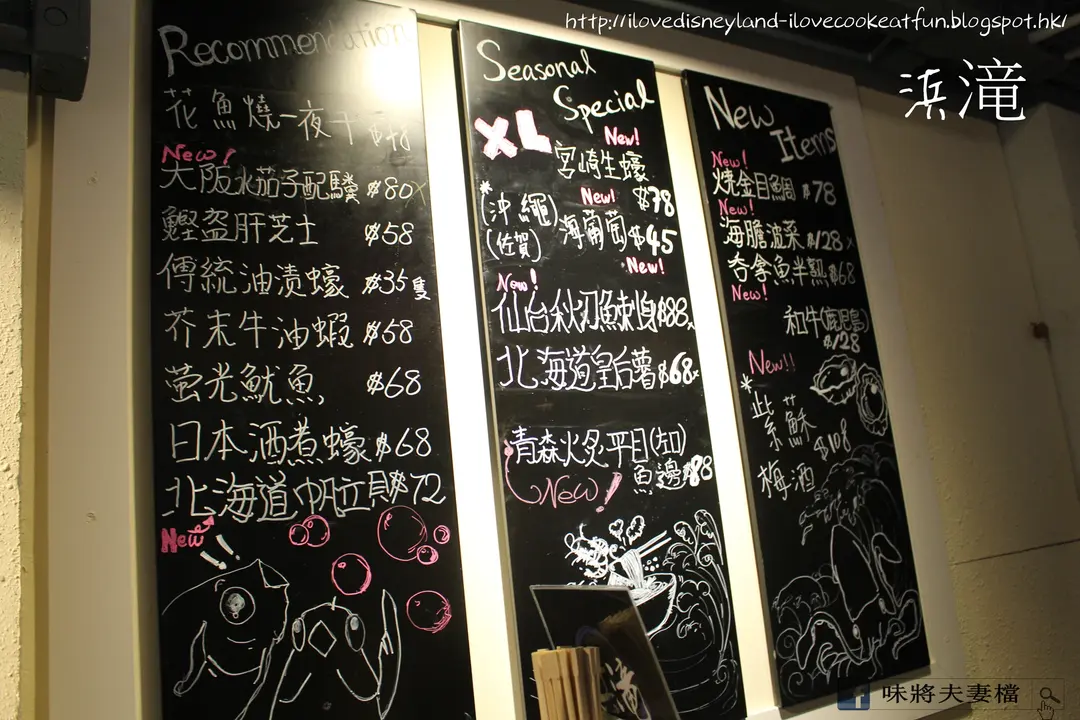 http://ilovedisneyland-ilovecookeatfun.blogspot.hk/
浜滝
Recommendation
花魚燒一夜干
New!
大阪水茄子配 $80
鰹盗肝芝士 $58
傳統油漬蠔 $35隻
芥末牛油蝦 $58
螢光魷魚 $68
日本酒煮蠔 $68
北海道帆立貝 $72
New
Seasonal
Special
XL
New!
宮崎生蠔
$78
New!
(沖繩)
(佐賀)
海葡萄 $45
New!
New!
仙台秋刀魚刺身 $88
北海道皇后薯 $68
青森火炙平目(左口)
魚邊 $88
New!
New
Items
New!
燒金目鯛 $78
New!
海膽波菜 $128
吞拿魚半熟 $68
New!
和牛(鹿兒島)
$128
New!!
紫蘇
梅酒
$108
味將夫妻檔